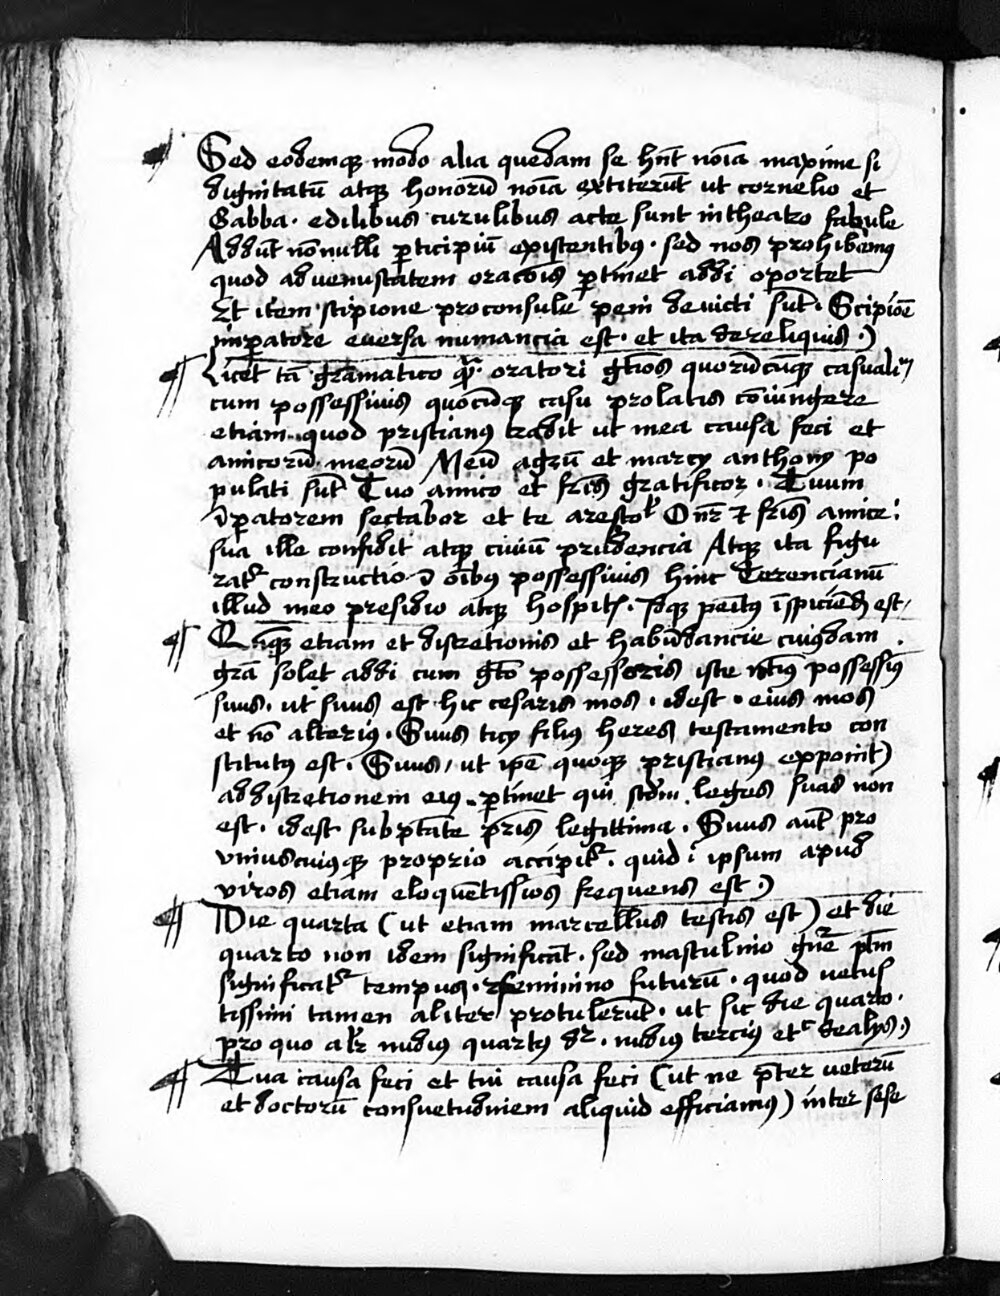 Sed eodemque modo alia quedam se hn̄t noīa maxime si
dignitatū atque honorū noīa extiterūt ut cornelio et
Gabba · edilibus curulibus acte sunt in theatro fabule
Addūt nōnulli p̄ticipiū existentibus · sed nos prohibemus
quod ad venustatem oracōis p̄tinet addi oportet
Et item scipione proconsule peni devicti sūt · Scipiōe
imp̄atore eversa numancia est · et ita de reliquis ·)
Licet tā grāmatico q̄ oratori gtōs quorūcūque casuali
cum possessivis quocūque casu prolatis cōiungere
etiam quod priscianus tradit ut mea causa feci et
amicorū meorū Meū agrū et marcy anthony po
pulati sūt Tuo amico et fr̄is gratificor · Tuum
īp̄atorem sectabor et te
sua ille confidit atque civiū prudencia Atque ita figu
rat constructio ī oībus possessivis hinc Terencianū
illud meo presidio atque hospitis · īspiciēd est
etiam et discretionis et habūdancie cuiusdam
grā solet addi cum gtō possessoris iste possessivus
suus · ut suus est hic cesaris mos · idest · eius mos
et nō alterius · Suus ticy filius heres testamento con
stitutus est · Suus / ut ipē quoque priscianus exponit)
ad discretionem eius p̄tinet qui scdm leges suus non
est · idest sub ptāte p̄ris legittima · Suus aūt pro
uniuscuiusque proprio accipit · quid ī ipsum apud
viros etiam eloquētissios frequens est ·)
Die quarta (ut etiam marcellus testis est) et die
quarto non idem significāt · sed masculino gn̄e
significat tempus · feminino futurū · quod vetus
tissimi tamen aliter protulerūt · ut sic die quarto ·
pro quo alr nudius quartus dr · nudius tercius etc de alys ·)
Tua causa feci et tui causa feci (ut ne p̄ter veterū
et doctorū consuetudinem aliquid efficiamus) inter sese